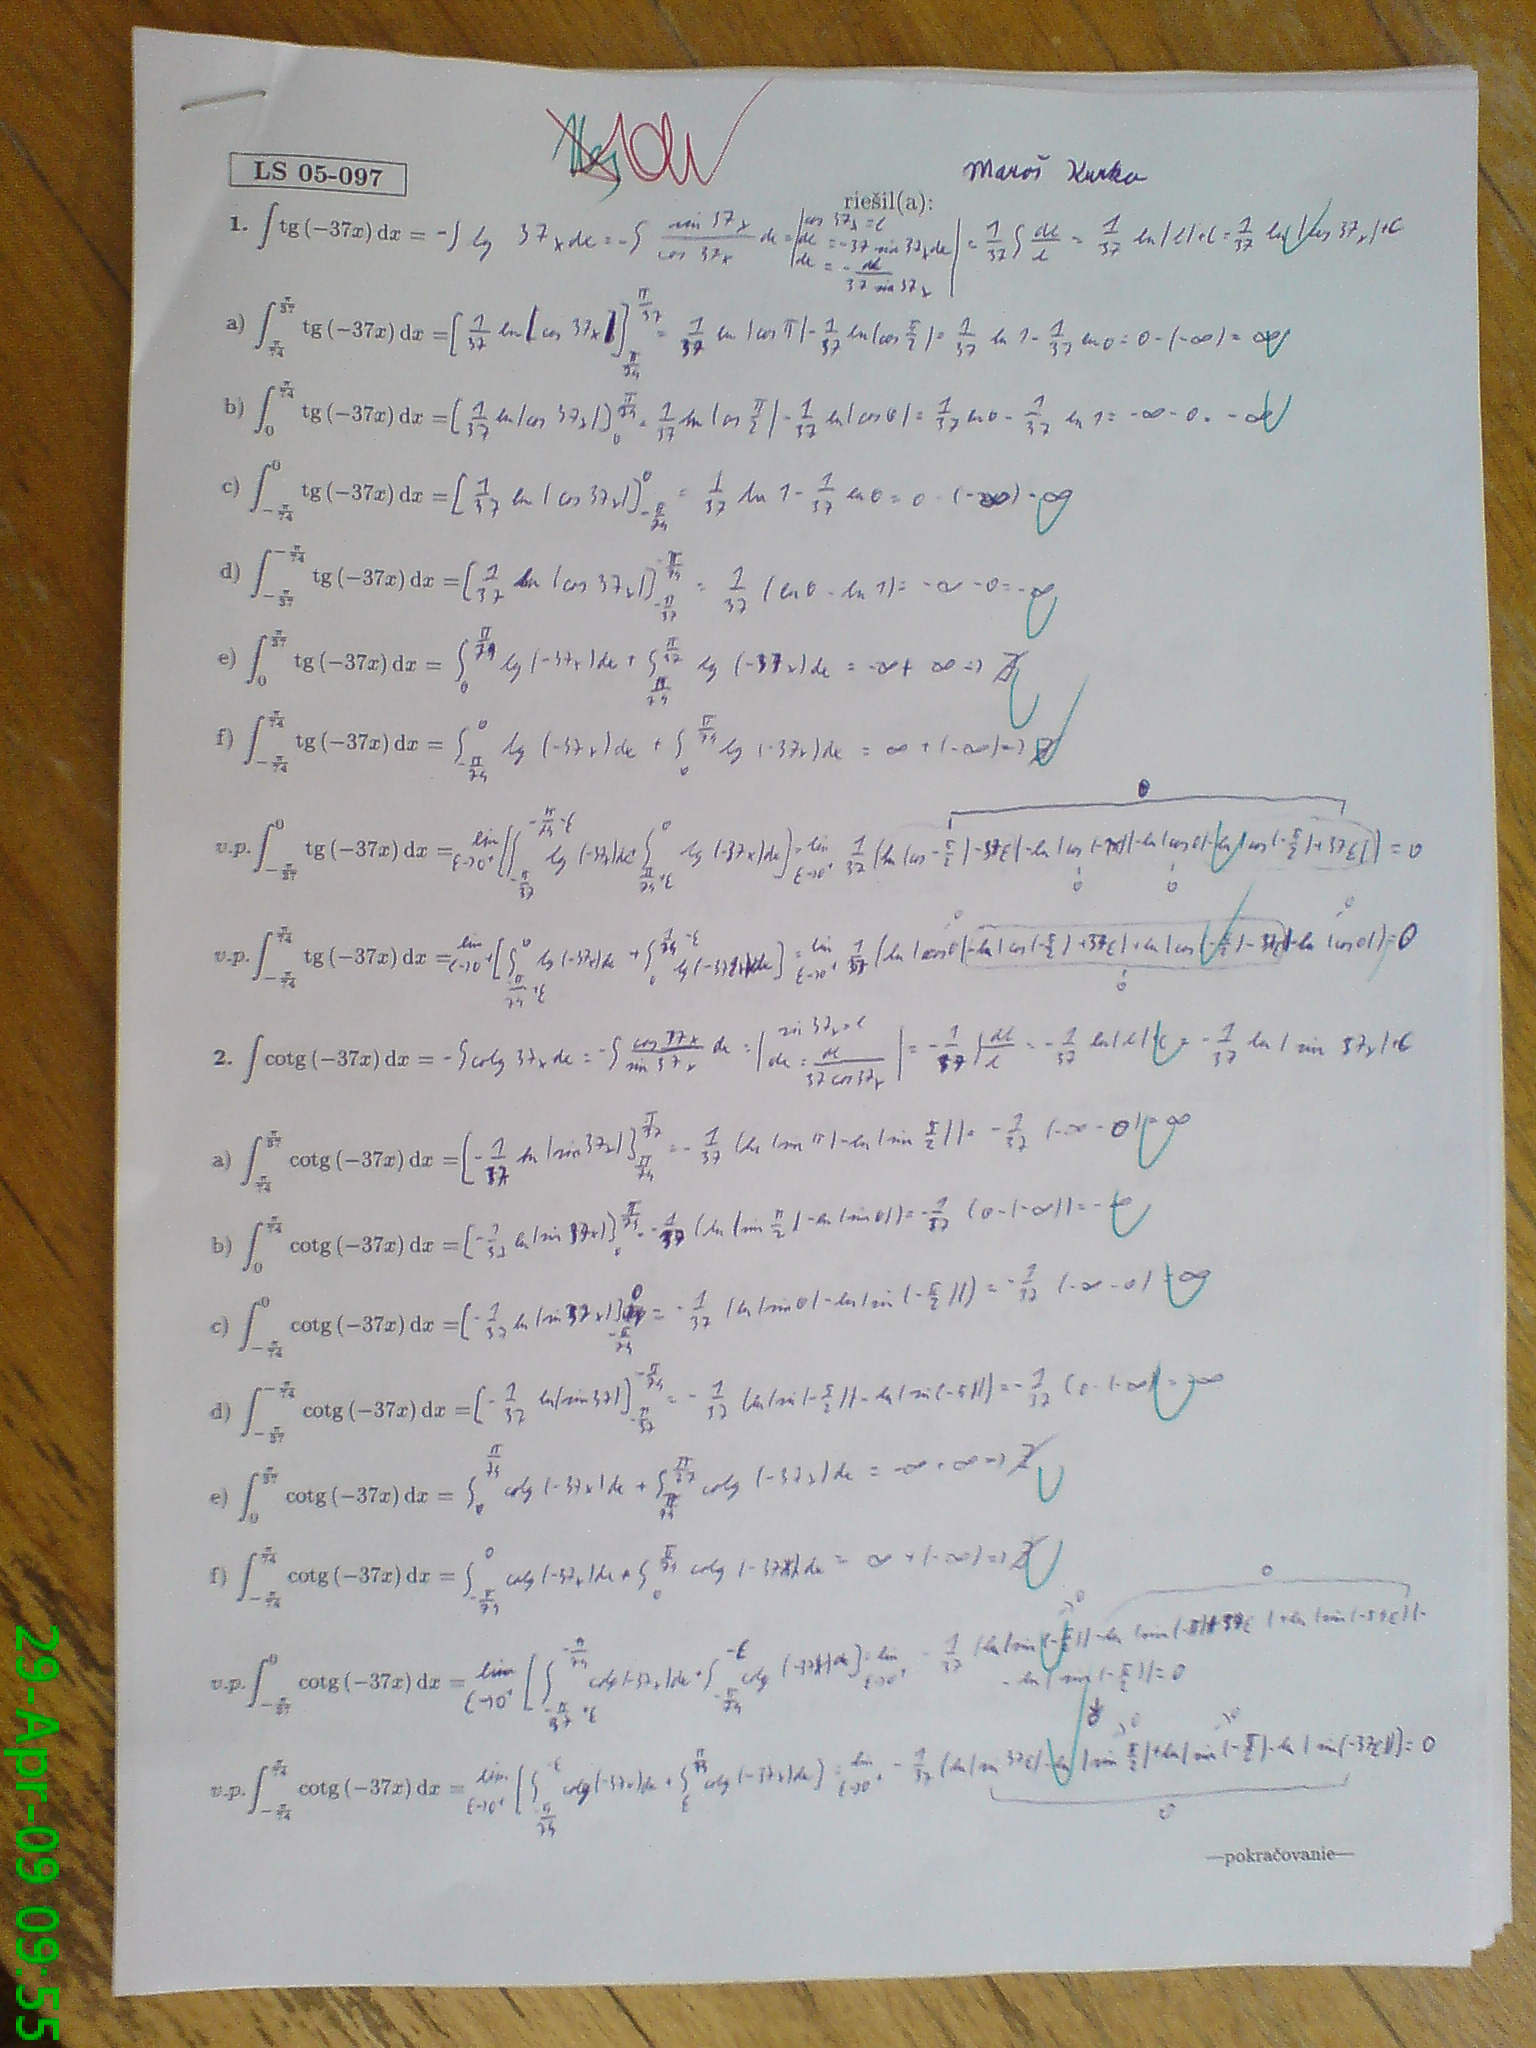 LS 05-097
Maroš Kurka
riešil(a):
1. ∫ tg (−37x) dx = -∫ tg 37x dx = -∫ sin 37x / cos 37x dx = | cos 37x = t, dt = -37 sin 37x dx, dx = - dt / 37 sin 37x | = 1/37 ∫ dt/t = 1/37 ln|t| + C = 1/37 ln|cos 37x| + C
a) ∫_{π/74}^{π/37} tg (−37x) dx = [1/37 ln|cos 37x|]_{π/74}^{π/37} = 1/37 ln|cos π| - 1/37 ln|cos π/2| = 1/37 ln 1 - 1/37 ln 0 = 0 - (-∞) = ∞
b) ∫_{0}^{π/74} tg (−37x) dx = [1/37 ln|cos 37x|]_{0}^{π/74} = 1/37 ln|cos π/2| - 1/37 ln|cos 0| = 1/37 ln 0 - 1/37 ln 1 = -∞ - 0 = -∞
c) ∫_{−π/74}^{0} tg (−37x) dx = [1/37 ln|cos 37x|]_{-π/74}^{0} = 1/37 ln 1 - 1/37 ln 0 = 0 - (-∞) = ∞
d) ∫_{−π/37}^{−π/74} tg (−37x) dx = [1/37 ln|cos 37x|]_{-π/37}^{-π/74} = 1/37 (ln 0 - ln 1) = -∞ - 0 = -∞
e) ∫_{0}^{π/37} tg (−37x) dx = ∫_{0}^{π/74} tg (-37x) dx + ∫_{π/74}^{π/37} tg (-37x) dx = -∞ + ∞ => ∄
f) ∫_{−π/74}^{π/74} tg (−37x) dx = ∫_{-π/74}^{0} tg (-37x) dx + ∫_{0}^{π/74} tg (-37x) dx = ∞ + (-∞) => ∄
0
v.p. ∫_{−π/37}^{0} tg (−37x) dx = lim_{ε→0⁺} [∫_{-π/37}^{-π/74-ε} tg (-37x) dx + ∫_{π/74+ε}^{0} tg (-37x) dx] = lim_{ε→0⁺} 1/37 = 0
0 0
v.p. ∫_{−π/74}^{π/74} tg (−37x) dx = lim_{ε→0⁺} [∫_{π/74+ε}^{0} tg (-37x) dx + ∫_{0}^{π/74-ε} tg (-37x) dx] = lim_{ε→0⁺} 1/37 = 0
0
2. ∫ cotg (−37x) dx = -∫ cotg 37x dx = -∫ cos 37x / sin 37x dx = | sin 37x = t, dx = dt / 37 cos 37x | = -1/37 ∫ dt/t = -1/37 ln|t| + C = -1/37 ln|sin 37x| + C
a) ∫_{π/74}^{π/37} cotg (−37x) dx = [-1/37 ln|sin 37x|]_{π/74}^{π/37} = -1/37 (ln|sin π| - ln|sin π/2|) = -1/37 (-∞ - 0) = ∞
b) ∫_{0}^{π/74} cotg (−37x) dx = [-1/37 ln|sin 37x|]_{0}^{π/74} = -1/37 (ln|sin π/2| - ln|sin 0|) = -1/37 (0 - (-∞)) = -∞
c) ∫_{−π/74}^{0} cotg (−37x) dx = [-1/37 ln|sin 37x|]_{-π/74}^{0} = -1/37 (ln|sin 0| - ln|sin (-π/2)|) = -1/37 (-∞ - 0) = ∞
d) ∫_{−π/37}^{−π/74} cotg (−37x) dx = [-1/37 ln|sin 37|]_{-π/37}^{-π/74} = -1/37 (ln|sin(-π/2)| - ln|sin(-π)|) = -1/37 (0 - (-∞)) = -∞
e) ∫_{0}^{π/37} cotg (−37x) dx = ∫_{0}^{π/74} cotg (-37x) dx + ∫_{π/74}^{π/37} cotg (-37x) dx = -∞ + ∞ => ∄
f) ∫_{−π/74}^{π/74} cotg (−37x) dx = ∫_{-π/74}^{0} cotg (-37x) dx + ∫_{0}^{π/74} cotg (-37x) dx = ∞ + (-∞) => ∄
0
v.p. ∫_{−π/37}^{0} cotg (−37x) dx = lim_{ε→0⁺} [∫_{-π/37+ε}^{-π/74} cotg (-37x) dx + ∫_{-π/74}^{-ε} cotg (-37x) dx] = lim_{ε→0⁺} -1/37
- ln|sin(-π/2)|) = 0
v.p. ∫_{−π/74}^{π/74} cotg (−37x) dx = lim_{ε→0⁺} [∫_{-π/74}^{-ε} cotg (-37x) dx + ∫_{ε}^{π/74} cotg (-37x) dx] = lim_{ε→0⁺} -1/37 (ln|sin 37ε| - ln|sin π/2| + ln|sin(-π/2)| - ln|sin(-37ε)|) = 0
0
—pokračovanie—
29-Apr-09 09:55